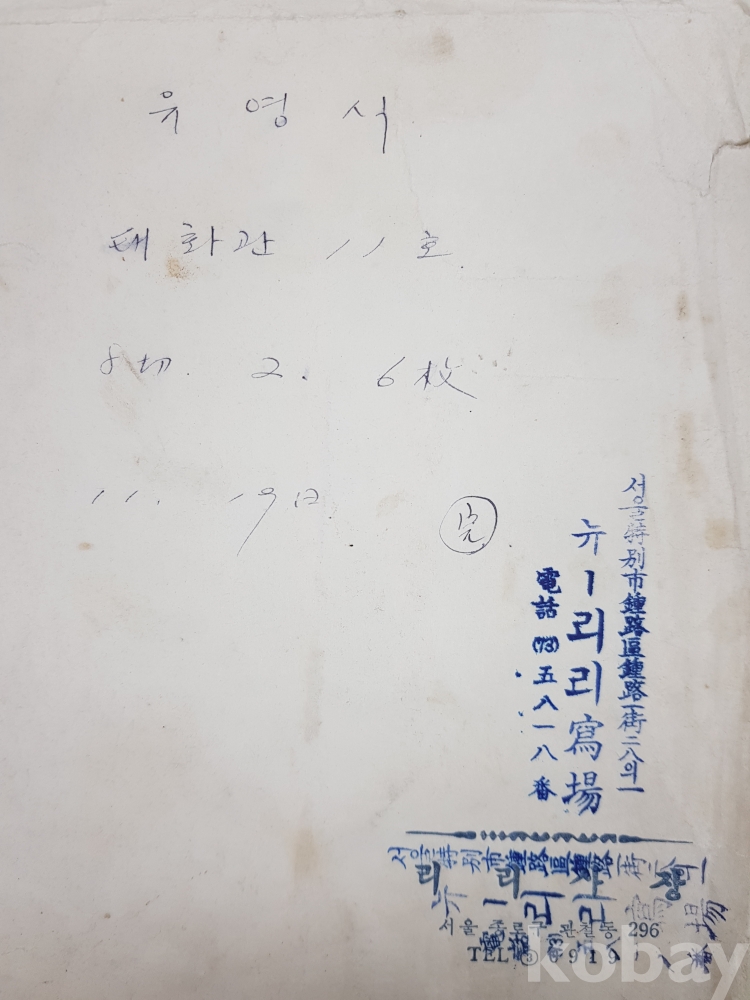 유 영 식.
태화관 11호.
8切. 2. 6枚
11. 19日. 完.
서울特別市鍾路區鍾路一街二八의一
뉴ー리리寫場
電話(73)五八一八番
서울特別市鍾路區鍾路
리 리 사 장
서울 종로구 관철동 296
TEL
kobay